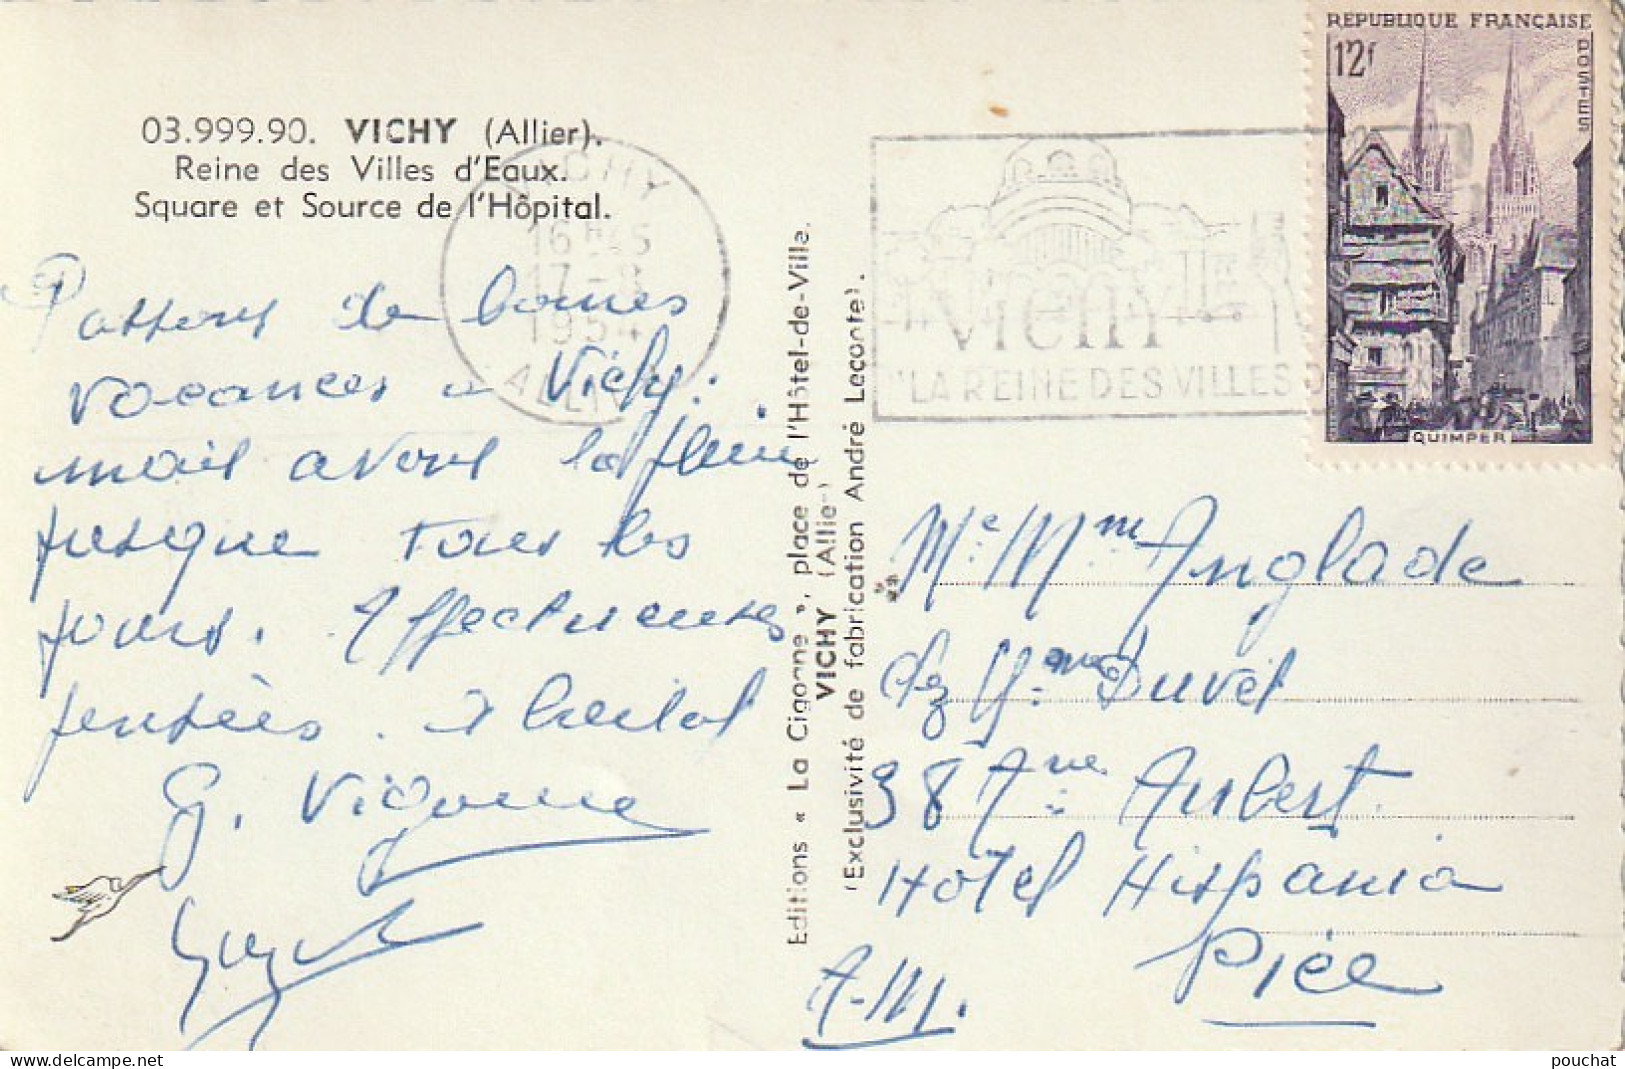 03.999.90. VICHY (Allier).
Reine des Villes d'Eaux.
Square et Source de l'Hôpital.
Passons de bonnes
vacances a Vichy.
mais avons la pluie
presque tous les
jours. Affectueuses
pensées.
G. Vigouroux
Editions « La Cigogne », place de l'Hôtel-de-Ville.
VICHY (Allier)
(Exclusivité de fabrication André Leconte).
VICHY
16 H 5
17 - 8
1954
ALLIER
VICHY
"LA REINE DES VILLES D
REPUBLIQUE FRANÇAISE
12f
POSTES
QUIMPER
Mr. Mme Anglade
chez Mme Duvet
38 Ave Aubert
Hotel Hispania
Nice
A-M.
pouchat